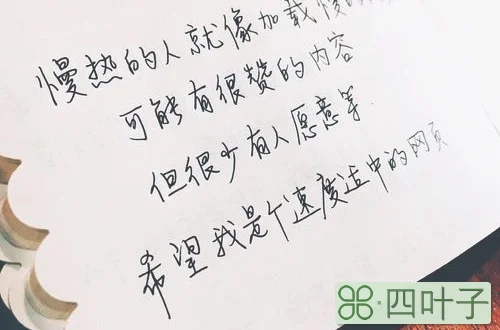 慢热的人就像加载慢的
可能有很赞的内容
但很少有人愿意等.
希望我是个速度适中的网页
四叶子